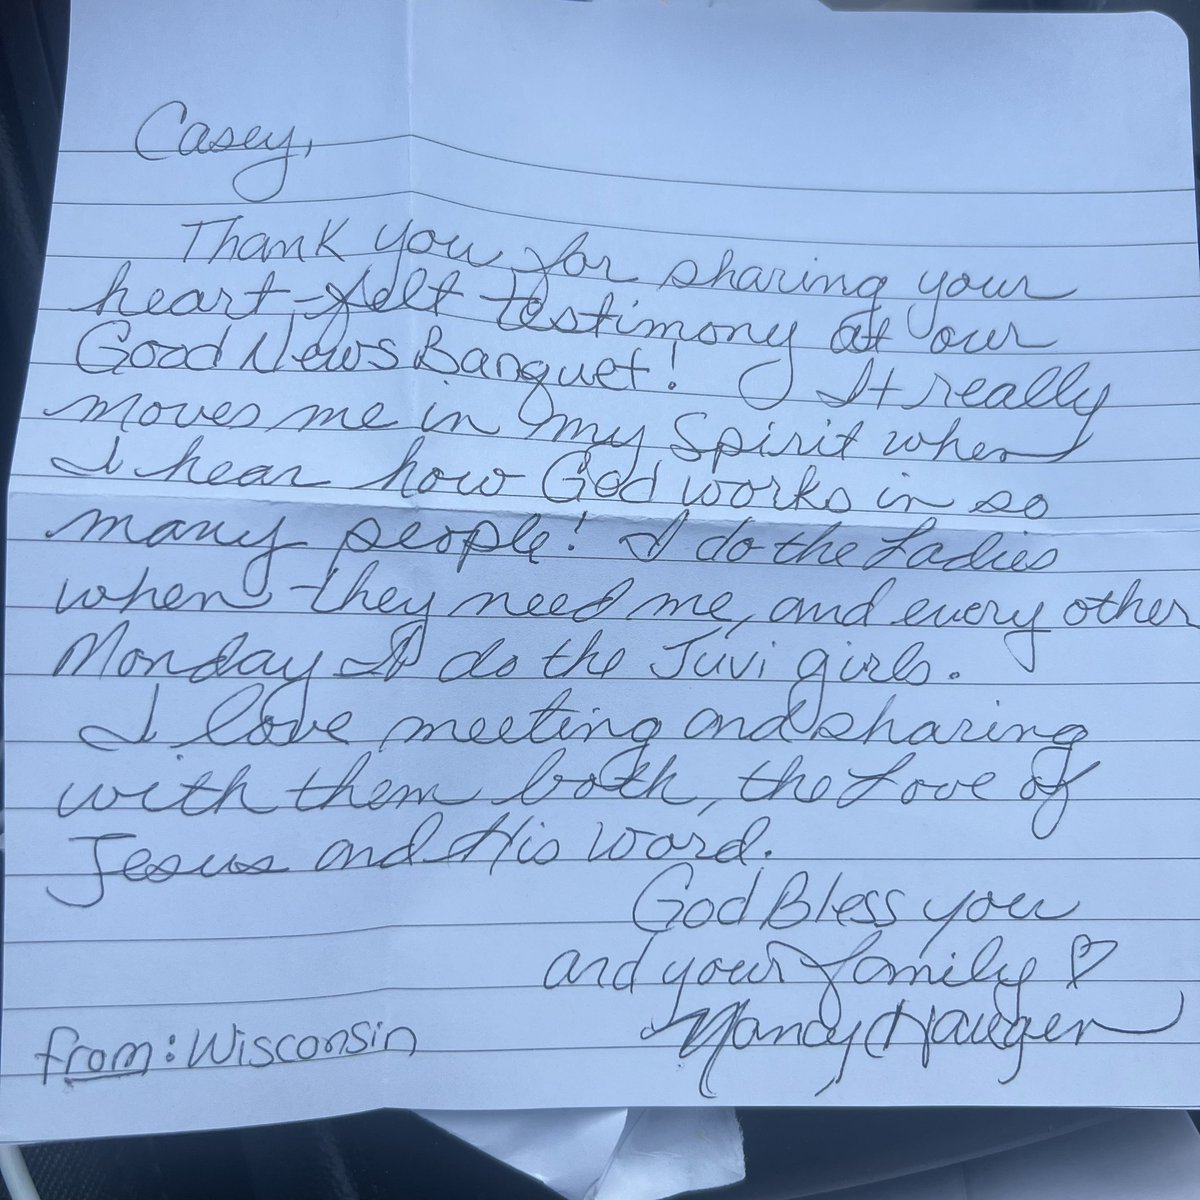 Casey,
Thank you for sharing your
heart-felt testimony at our
Good News Banquet! It really
moves me in my Spirit when
I hear how God works in so
many people! I do the Ladies
when they need me, and every other
Monday I do the Juvi girls.
I love meeting and sharing
with them both, the Love of
Jesus and His Word.
God Bless you
and your family ♡
Nancy Hauger
from: Wisconsin